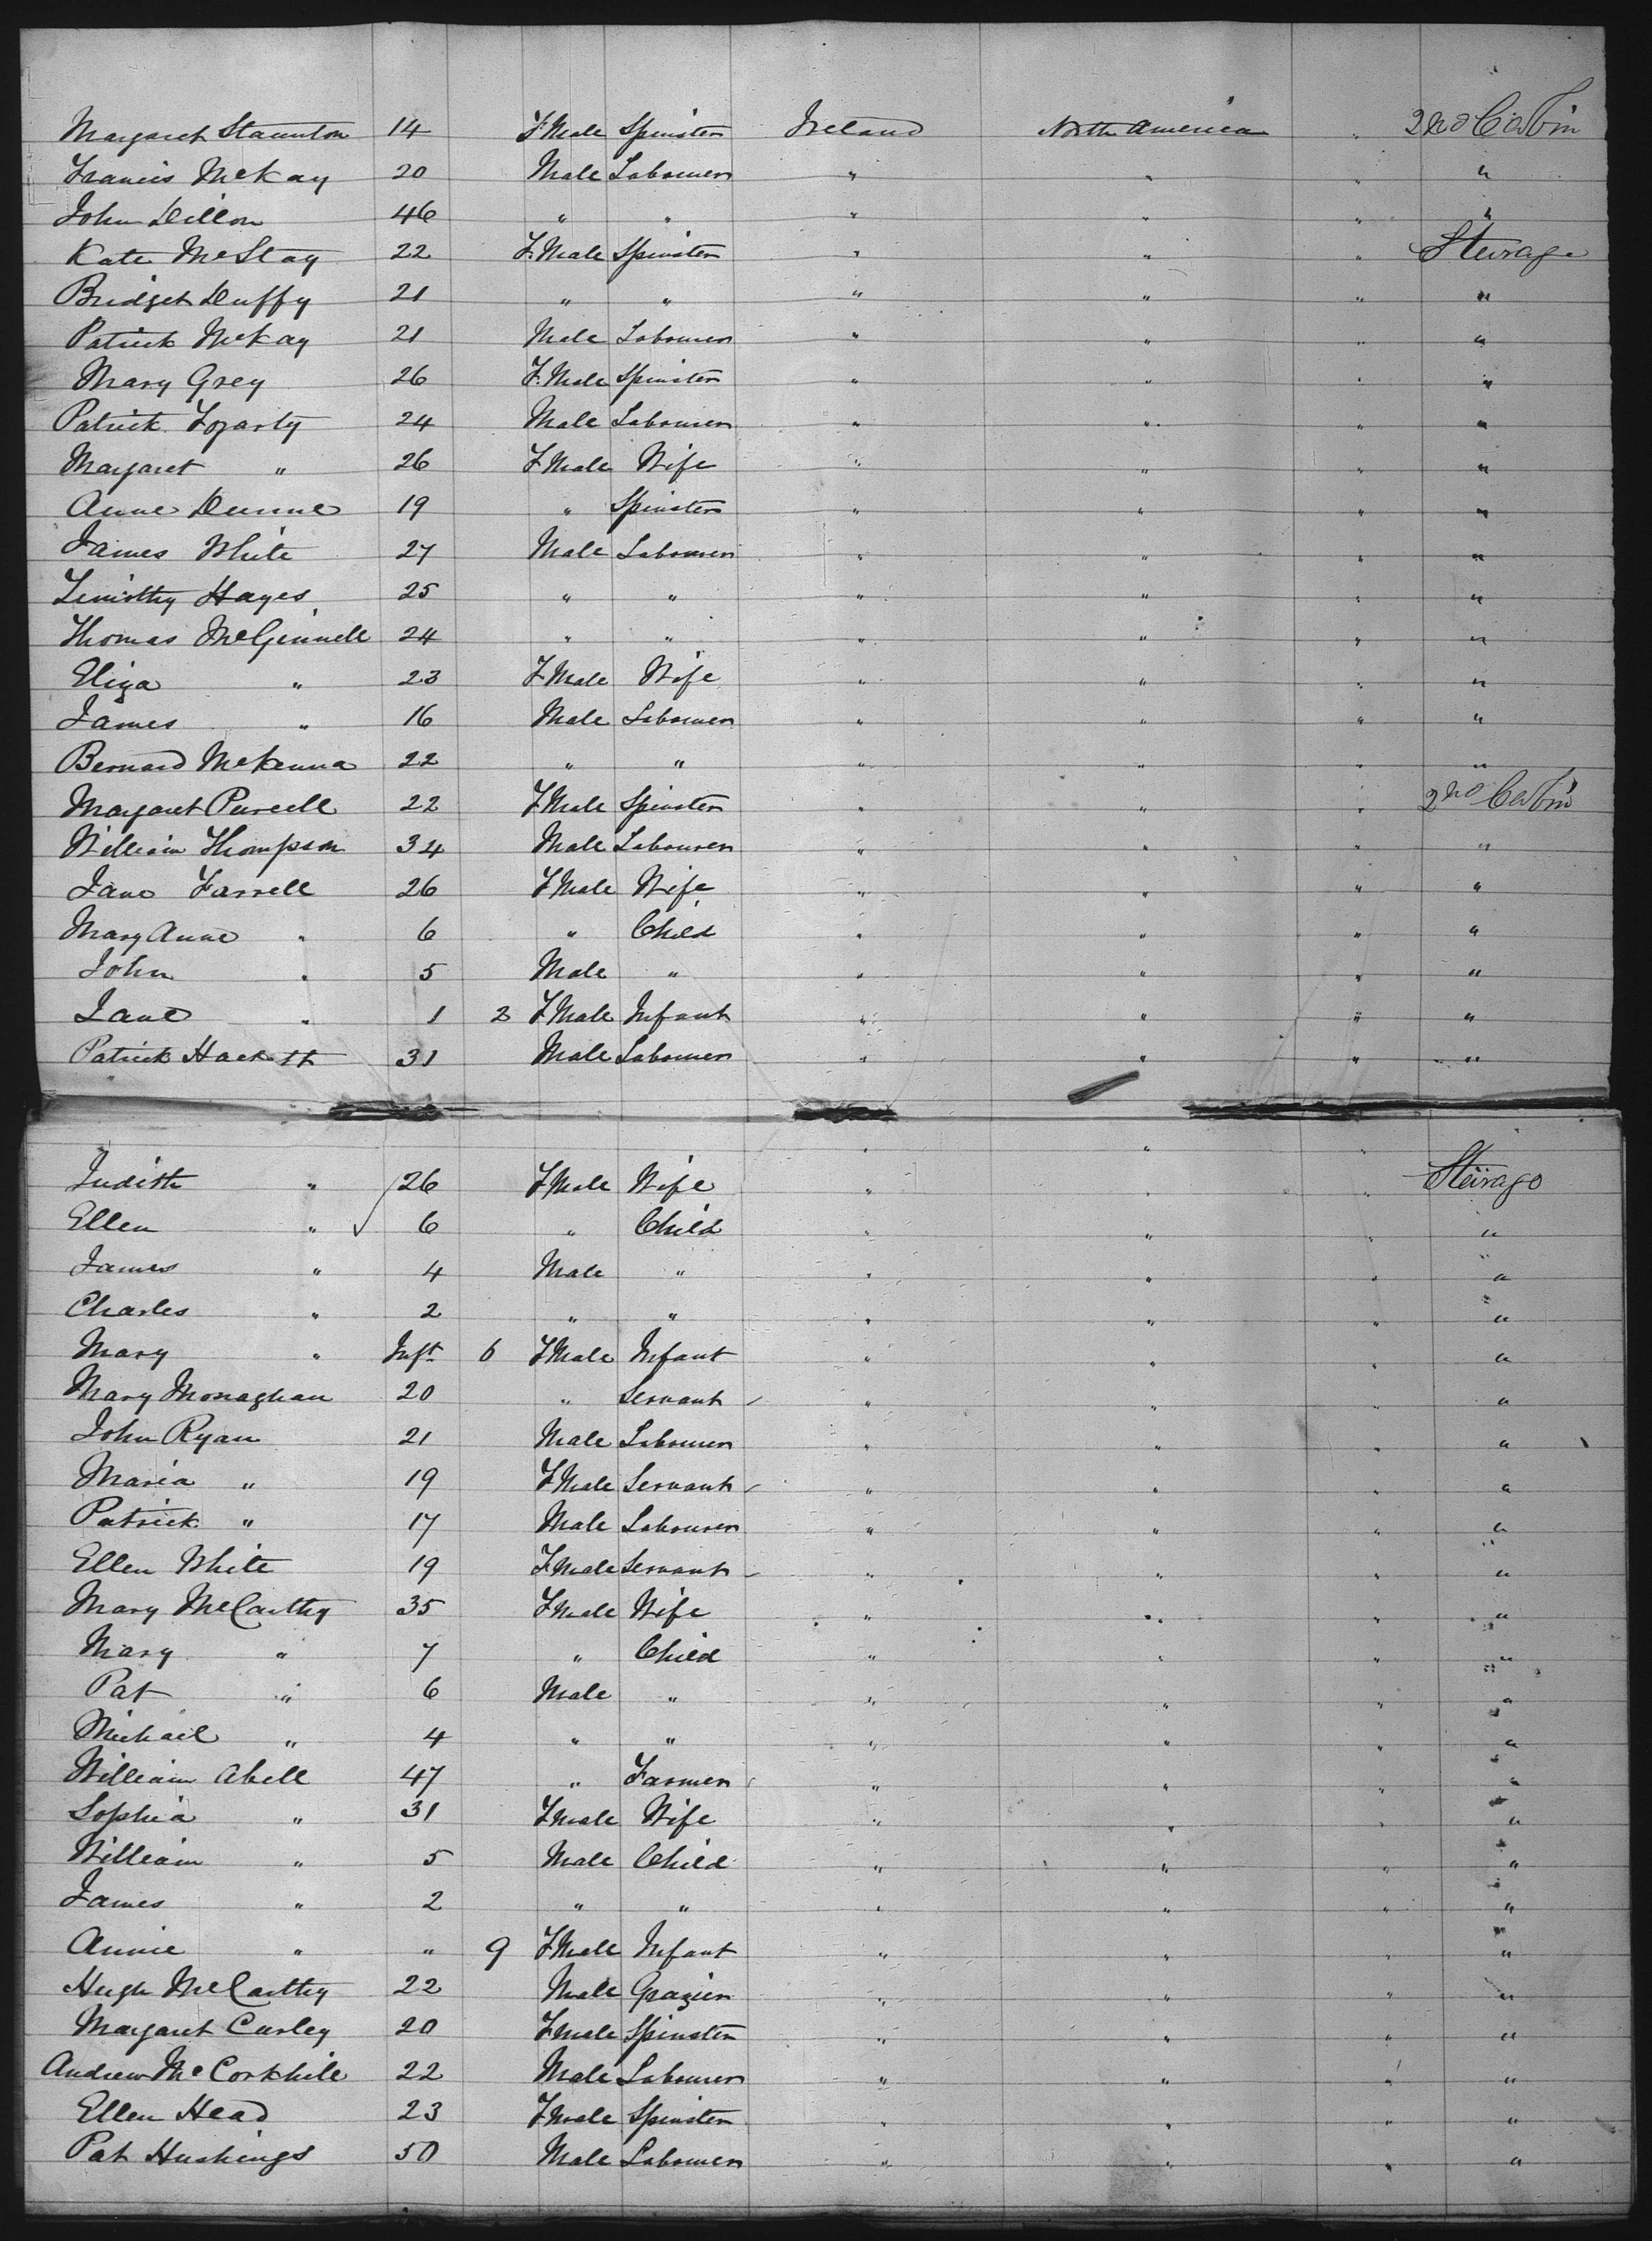 Margaret Staunton 14 F.Male Spinster Ireland North America " 2nd Cabin
Francis McKay 20 Male Labourer " " " "
John Dillon 46 " " " " " "
Kate McStay 22 F.Male Spinster " " " Steirage
Bridget Duffy 21 " " " " " "
Patrick McKay 21 Male Labourer " " " "
Mary Grey 26 F.Male Spinster " " " "
Patrick Fogarty 24 Male Labourer " " " "
Margaret " 26 F.Male Wife " " " "
Anne Dunne 19 " Spinster " " " "
James White 27 Male Labourer " " " "
Timothy Hayes 25 " " " " " "
Thomas McGinnell 24 " " " " " "
Eliza " 23 F.Male Wife " " " "
James " 16 Male Labourer " " " "
Bernard McKenna 22 " " " " " "
Margaret Purcell 22 F.Male Spinster " " " 2nd Cabin
William Thompson 34 Male Labourer " " " "
Jane Farrell 26 F.Male Wife " " " "
Mary Anne " 6 " Child " " " "
John " 5 Male " " " " "
Jane " 1 2 F.Male Infant " " " "
Patrick Hackett 31 Male Labourer " " " "
" " "
Judith " 26 F.Male Wife " " " Steirage
Ellen " 6 " Child " " " "
James " 4 Male " " " " "
Charles " 2 " " " " " "
Mary " Inft 6 F.Male Infant " " " "
Mary Monaghan 20 " Servant " " " "
John Ryan 21 Male Labourer " " " "
Maria " 19 F.Male Servant " " " "
Patrick " 17 Male Labourer " " " "
Ellen White 19 F.Male Servant " " " "
Mary McCarthy 35 F.Male Wife " " " "
Mary " 7 " Child " " " "
Pat " 6 Male " " " " "
Michael " 4 " " " " " "
William Abell 47 " Farmer " " " "
Sophia " 31 F.Male Wife " " " "
William " 5 Male Child " " " "
James " 2 " " " " " "
Annie " " 9 F.Male Infant " " " "
Hugh McCarthy 22 Male Grazier " " " "
Margaret Curley 20 F.Male Spinster " " " "
Andrew McCorkhile 22 Male Labourer " " " "
Ellen Head 23 F.Male Spinster " " " "
Pat Hushings 50 Male Labourer " " " "